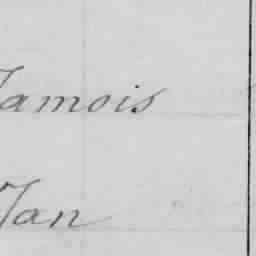 Jamois
Jan